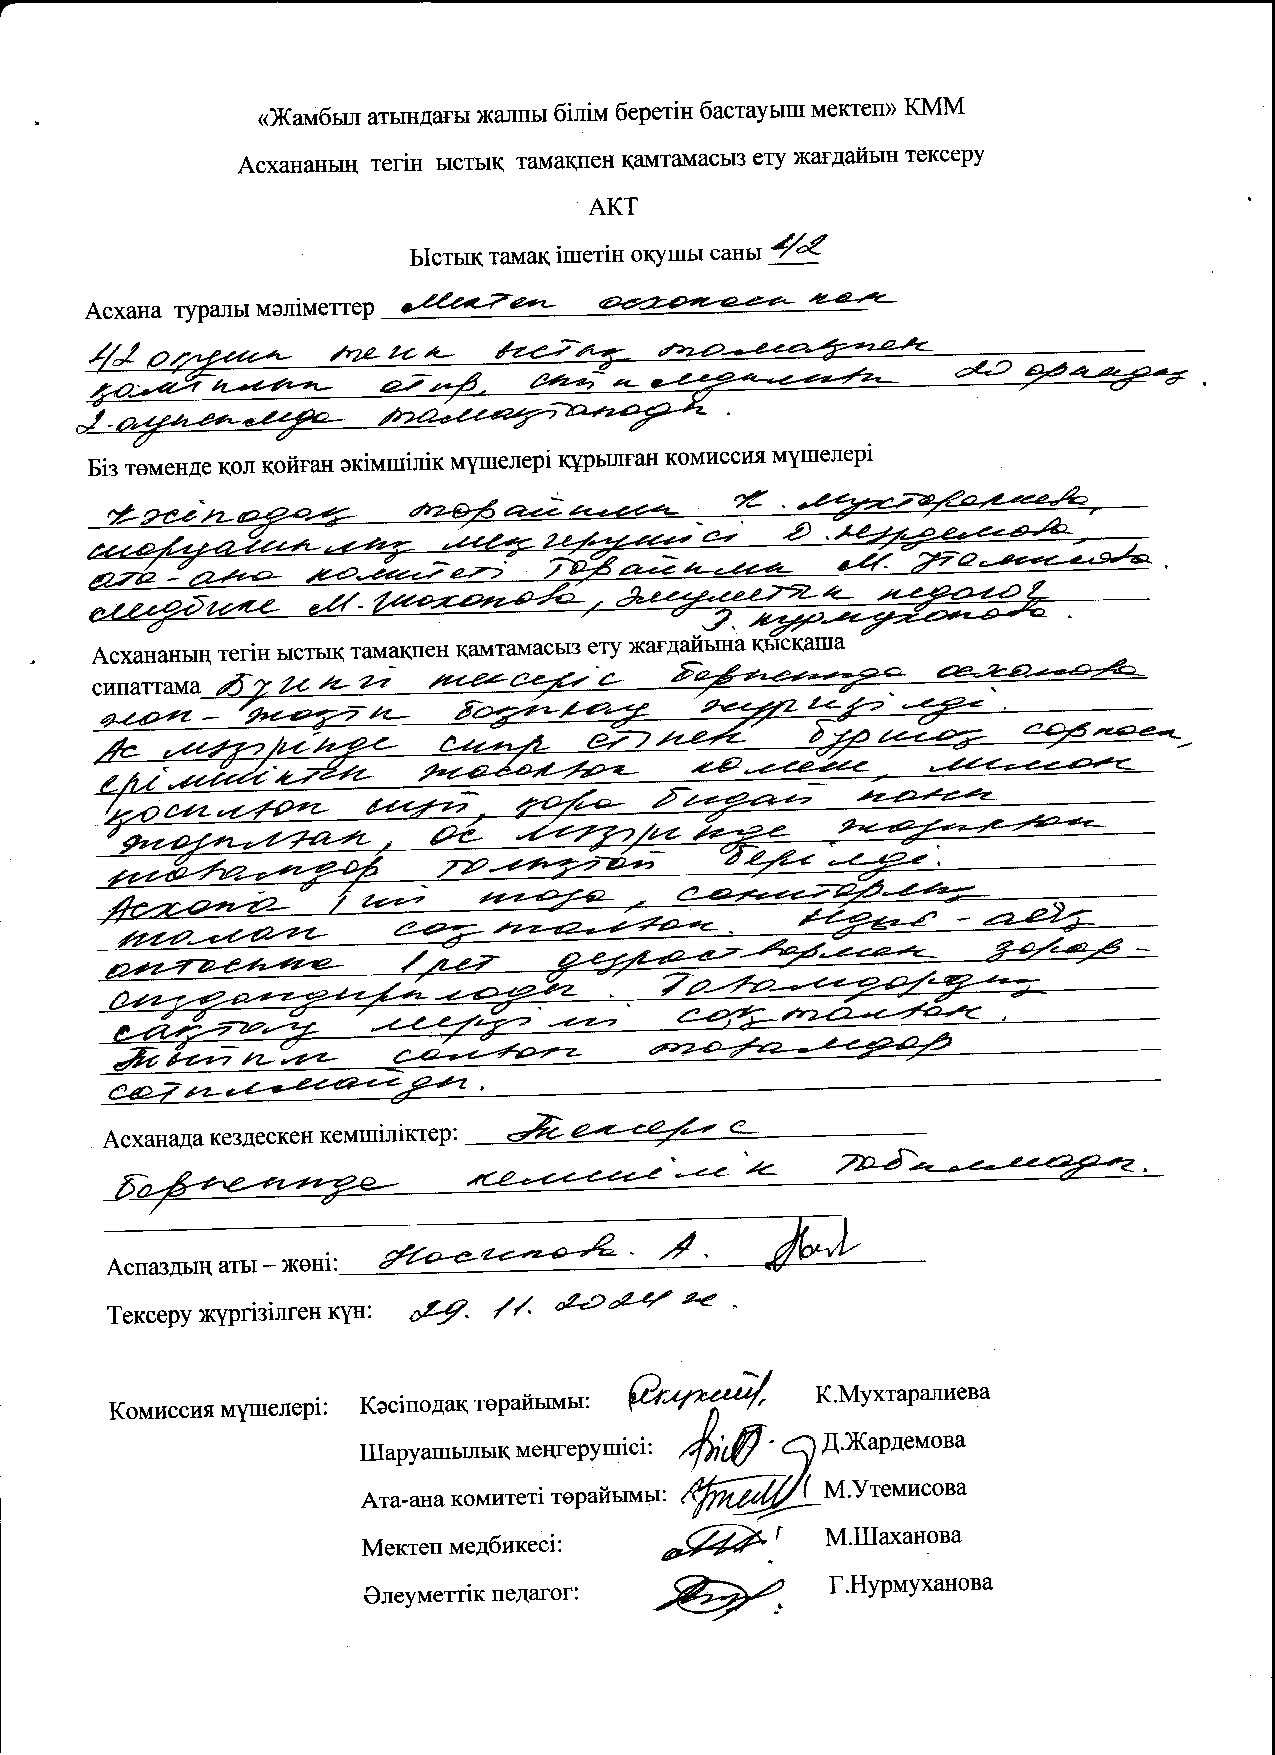 «Жамбыл атындағы жалпы білім беретін бастауыш мектеп» КММ
Асхананың тегін ыстық тамақпен қамтамасыз ету жағдайын тексеру
АКТ
Ыстық тамақ ішетін оқушы саны 42
Асхана туралы мәліметтер Мектеп асханасынан
42 оқушы тегін ыстық тамақпен
қамтылып отыр, сыйымдылығы 20 орындық
2-ауысымда тамақтанады.
Біз төменде қол қойған әкімшілік мүшелері құрылған комиссия мүшелері
Кәсіподақ төрайымы К. Мухтаралиева,
шаруашылық меңгерушісі Д. Жардемова,
ата-ана комитеті төрайымы М. Утемисова.
медбике М. Шаханова, әлуметтік педагог
Нурмуханова.
Асхананың тегін ыстық тамақпен қамтамасыз ету жағдайына қысқаша
сипаттама Бүгінгі тексеріс барысында асханаға
жан-жақты бақылау жүргізілді.
Ас мәзірінде сиыр етінен бұршақ сорпасы,
ірімшіктен жасалған көмеш, лимон
қосылған шәй, қара бидай наны
жазылған, ас мәзірінде жазылған
тағамдар толықтай берілді.
Асхана іші таза, санитарлық
талап сақталған. Ыдыс-аяқ
аптасына 1 рет дезраствормен зарар-
сыздандырылады. Тағамдардың
сақталу мерзімі сақталған.
Тыйым салған тағамдар
сатылмайды.
Асханада кездескен кемшіліктер: Тексеріс
барысында кемшілік табылмады.
Аспаздың аты – жөні: Насипова. А.
Тексеру жүргізілген күн: 29. 11. 2024 ж.
Комиссия мүшелері: Кәсіподақ төрайымы: К.Мухтаралиева
Шаруашылық меңгерушісі: Д.Жардемова
Ата-ана комитеті төрайымы: М.Утемисова
Мектеп медбикесі: М.Шаханова
Әлеуметтік педагог: Г.Нурмуханова